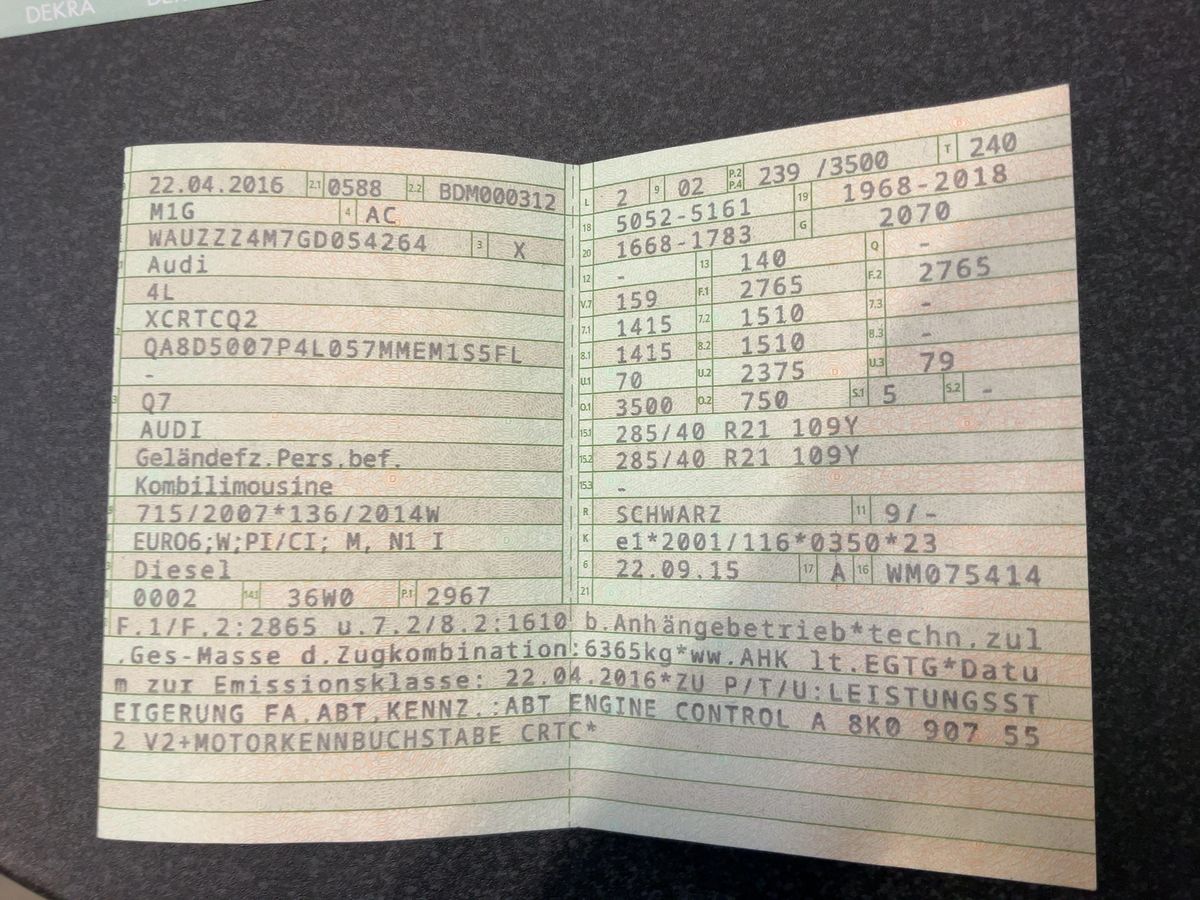 DEKRA
22.04.2016 2.1 0588 2.2 BDM000312
M1G 4 AC
WAUZZZ4M7GD054264 3 X
Audi
4L
XCRTCQ2
QA8D5007P4L057MMEM1S5FL
-
Q7
AUDI
Geländefz.Pers.bef.
Kombilimousine
715/2007*136/2014W
EURO6;W;PI/CI; M, N1 I
Diesel
0002 14.1 36W0 P.1 2967
L 2 9 02 P.2 P.4 239 /3500 T 240
18 5052-5161 19 1968-2018
20 1668-1783 G 2070
12 - 13 140 Q -
V.7 159 F.1 2765 F.2 2765
7.1 1415 7.2 1510 7.3 -
8.1 1415 8.2 1510 8.3 -
U.1 70 U.2 2375 U.3 79
O.1 3500 O.2 750 S.1 5 S.2 -
15.1 285/40 R21 109Y
15.2 285/40 R21 109Y
15.3 -
R SCHWARZ 11 9/-
K e1*2001/116*0350*23
6 22.09.15 17 A 16 WM075414
21
F.1/F.2:2865 u.7.2/8.2:1610 b.Anhängebetrieb*techn.zul
.Ges-Masse d.Zugkombination:6365kg*ww.AHK lt.EGTG*Datu
m zur Emissionsklasse: 22.04.2016*ZU P/T/U:LEISTUNGSST
EIGERUNG FA.ABT,KENNZ.:ABT ENGINE CONTROL A 8K0 907 55
2 V2+MOTORKENNBUCHSTABE CRTC*